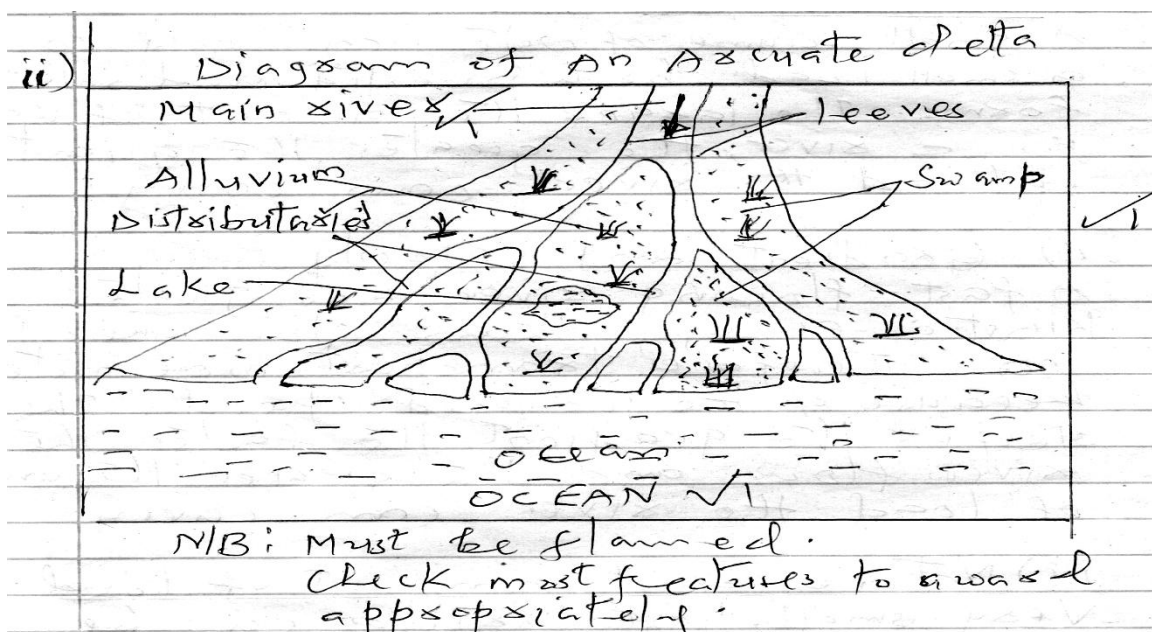 ii) Diagram of An Arcuate delta
Main river √1
leeves
Alluvium
Swamp
√1
Distributaries
Lake
Ocean
OCEAN √1
N/B: Must be flamed.
Check most features to award
appropriately.